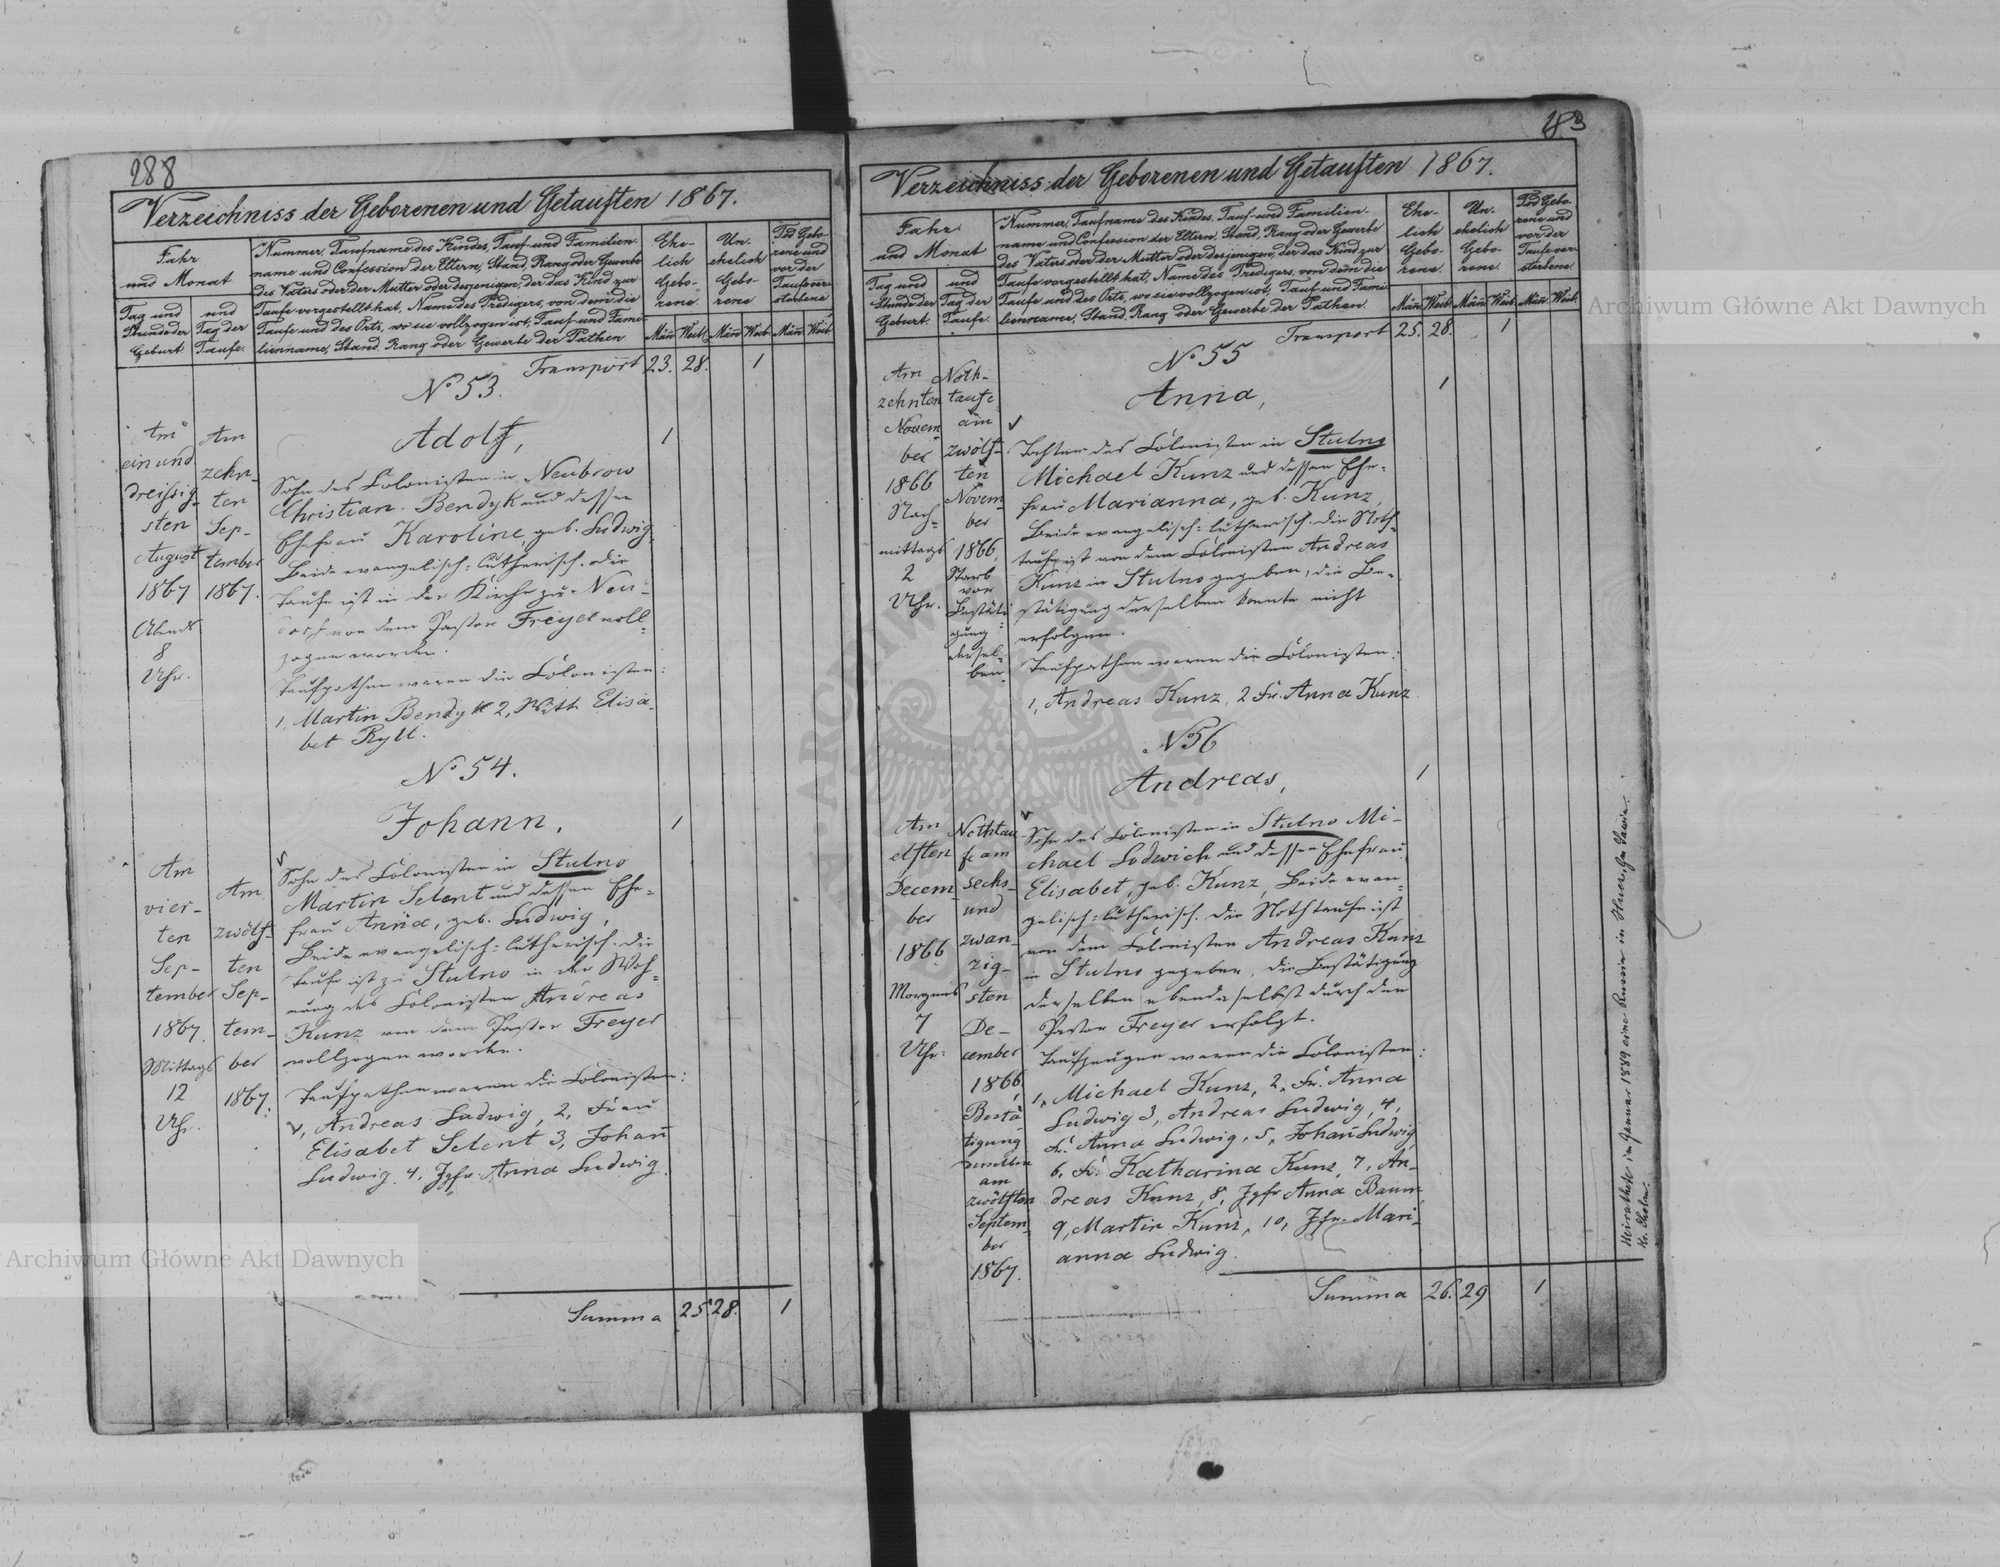 288
Verzeichniss der Geborenen und Getauften 1867.
Jahr und Monat
Tag und Stunde der Geburt.
und Tag der Taufe.
Nummer, Taufname des Kindes, Tauf- und Familien-
name und Confession der Eltern, Stand, Rang oder Gewerbe
des Vaters oder der Mutter oder desjenigen, der das Kind zur
Taufe vorgestellt hat, Name des Predigers, von dem die
Taufe und des Orts, wo sie vollzogen ist, Tauf- und Fami-
lienname, Stand, Rang oder Gewerbe der Pathen.
Ehe-
lich
Gebo-
rene.
Un-
ehelich
Gebo-
rene
Tod Gebo-
rene und
vor der
Taufe ver-
storbene
Män. Weib. Män. Weib. Män. Weib.
Transport 23. 28. 1
No 53.
Am
ein und
dreissig-
sten
August
1867
Abends
8
Uhr.
Am
zehn-
ten
Sep-
tember
1867.
Adolf, 1
Sohn des Colonisten in Neubrow
Christian Bendyk und dessen
Ehefrau Karoline, geb. Ludwig,
Beide evangelisch-lutherisch. Die
Taufe ist in der Kirche zu Neu-
dorf von dem Pastor Freyer voll-
zogen worden.
Taufpathen waren die Colonisten:
1, Martin Bendyk 2, Witt. Elisa-
bet Ryll.
No 54.
Am
vier-
ten
Sep-
tember
1867.
Mittags
12
Uhr.
Am
zwölf-
ten
Sep-
tem-
ber
1867.
Johann, 1
Sohn des Colonisten in Stulno
Martin Selent und dessen Ehe-
frau Anna, geb. Ludwig,
Beide evangelisch-lutherisch. Die
Taufe ist zu Stulno in der Woh-
nung des Colonisten Andreas
Kunz von dem Pastor Freyer
vollzogen worden.
Taufpathen waren die Colonisten:
1, Andreas Ludwig, 2, Frau
Elisabet Selent 3, Johan̄
Ludwig. 4, Jgfr. Anna Ludwig.
Summa 25. 28. 1
Verzeichniss der Geborenen und Getauften 1867.
Jahr
und Monat
Tag und
Stunde der
Geburt.
und
Tag der
Taufe.
Nummer, Taufname des Kindes, Tauf- und Familien-
name und Confession der Eltern, Stand, Rang oder Gewerbe
des Vaters oder der Mutter oder desjenigen, der das Kind zur
Taufe vorgestellt hat, Name des Predigers, von dem die
Taufe und des Orts, wo sie vollzogen ist, Tauf- und Fami-
lienname, Stand, Rang oder Gewerbe der Pathen.
Ehe-
lich
Gebo-
rene.
Un-
ehelich
Gebo-
rene.
Tod Gebo-
rene und
vor der
Taufe ver-
storbene.
Män. Weib. Män. Weib. Män. Weib.
Transport 25. 28. 1
No 55
Am
zehnten
Novem-
ber
1866
Nach-
mittags
2
Uhr.
Noth-
taufe
am
zwölf-
ten
Novem-
ber
1866,
Starb
vor
Bestäti-
gung
dersel-
ben.
Anna, 1
Tochter des Colonisten in Stulno
Michael Kunz und dessen Ehe-
frau Marianna, geb. Kunz,
Beide evangelisch-lutherisch. Die Noth-
taufe ist von dem Colonisten Andreas
Kunz in Stulno gegeben, die Be-
stätigung derselben konnte nicht
erfolgen.
Taufpathen waren die Colonisten:
1, Andreas Kunz, 2 Fr. Anna Kunz.
No 56
Am
elften
Decem-
ber
1866
Morgens
7
Uhr.
Nothtau-
fe am
sechs-
und
zwan-
zig-
sten
De-
cember
1866,
Bestä-
tigung
derselben
am
zwölften
Septem-
ber
1867.
Andreas, 1
Sohn des Colonisten in Stulno Mi-
chael Lodwich und dessen Ehefrau
Elisabet, geb. Kunz, Beide evan-
gelisch-lutherisch. Die Nothtaufe ist
von dem Colonisten Andreas Kunz
in Stulno gegeben, die Bestätigung
derselben ebendaselbst durch den
Pastor Freyer erfolgt.
Taufzeugen waren die Colonisten:
1, Michael Kunz, 2, Fr. Anna
Ludwig 3, Andreas Ludwig, 4,
Fr. Anna Ludwig, 5, Johan̄ Ludwig
6, Fr. Katharina Kunz, 7, An-
dreas Kunz, 8, Jgfr Anna Baum,
9, Martin Kunz, 10, Jfr. Mari-
anna Ludwig.
Summa 26. 29 1
Heirathete im Januar 1889 eine Russin in
Kr. Cholm.
Archiwum Główne Akt Dawnych
Archiwum Główne Akt Dawnych